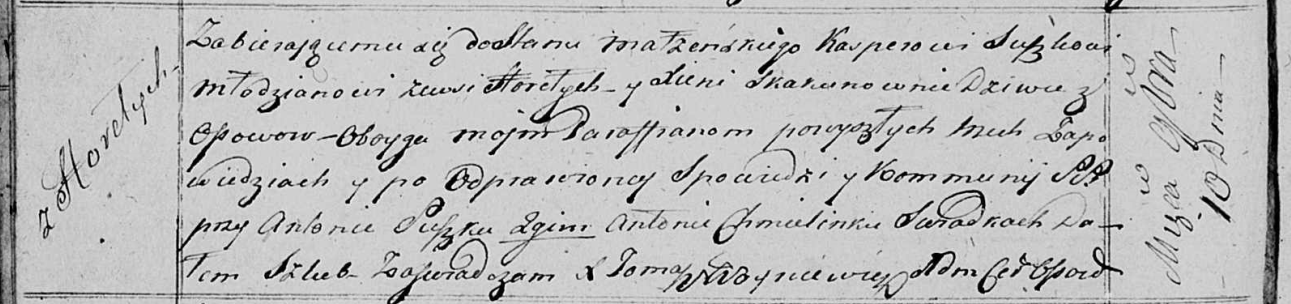 z Horełych
Zabierającemu się do Stanu małżeńskiego Kasperowi Suszkowi
młodzianowi ze wsi Horełych y Xieni Skakunownie Dziwce z
Osowow Oboyga moim Paraffianom powyszłych trzech Zapo
wiedziach y po Odprawioney Spowiedzi y Kommunij
przy Antonie Suszku 2gim Antonie Chmielinku Swiadkach Da-
łem Szlub Zaswiadczam X Tomasz Adm Cer Osow
Msca
10 Dnia